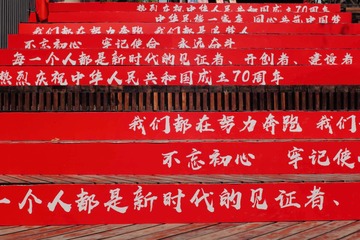 热烈庆祝中华人民共和国成立70周年
中华民族一家亲 同心共筑中国梦
我们都在努力奔跑 我们都是追梦人
不忘初心 牢记使命 永远奋斗
每一个人都是新时代的见证者、开创者、建设者
热烈庆祝中华人民共和国成立70周年
我们都在努力奔跑 我们
不忘初心 牢记使
一个人都是新时代的见证者、